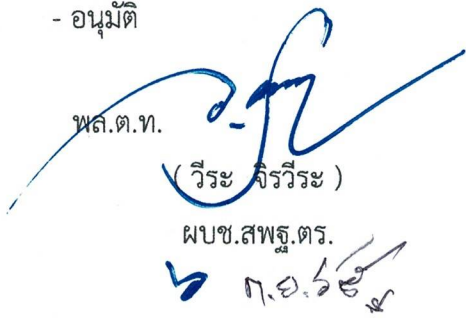 - อนุมัติ
พล.ต.ท.
( วีระ จิรวีระ )
ผบช.สพฐ.ตร.
๖ ก.ย.